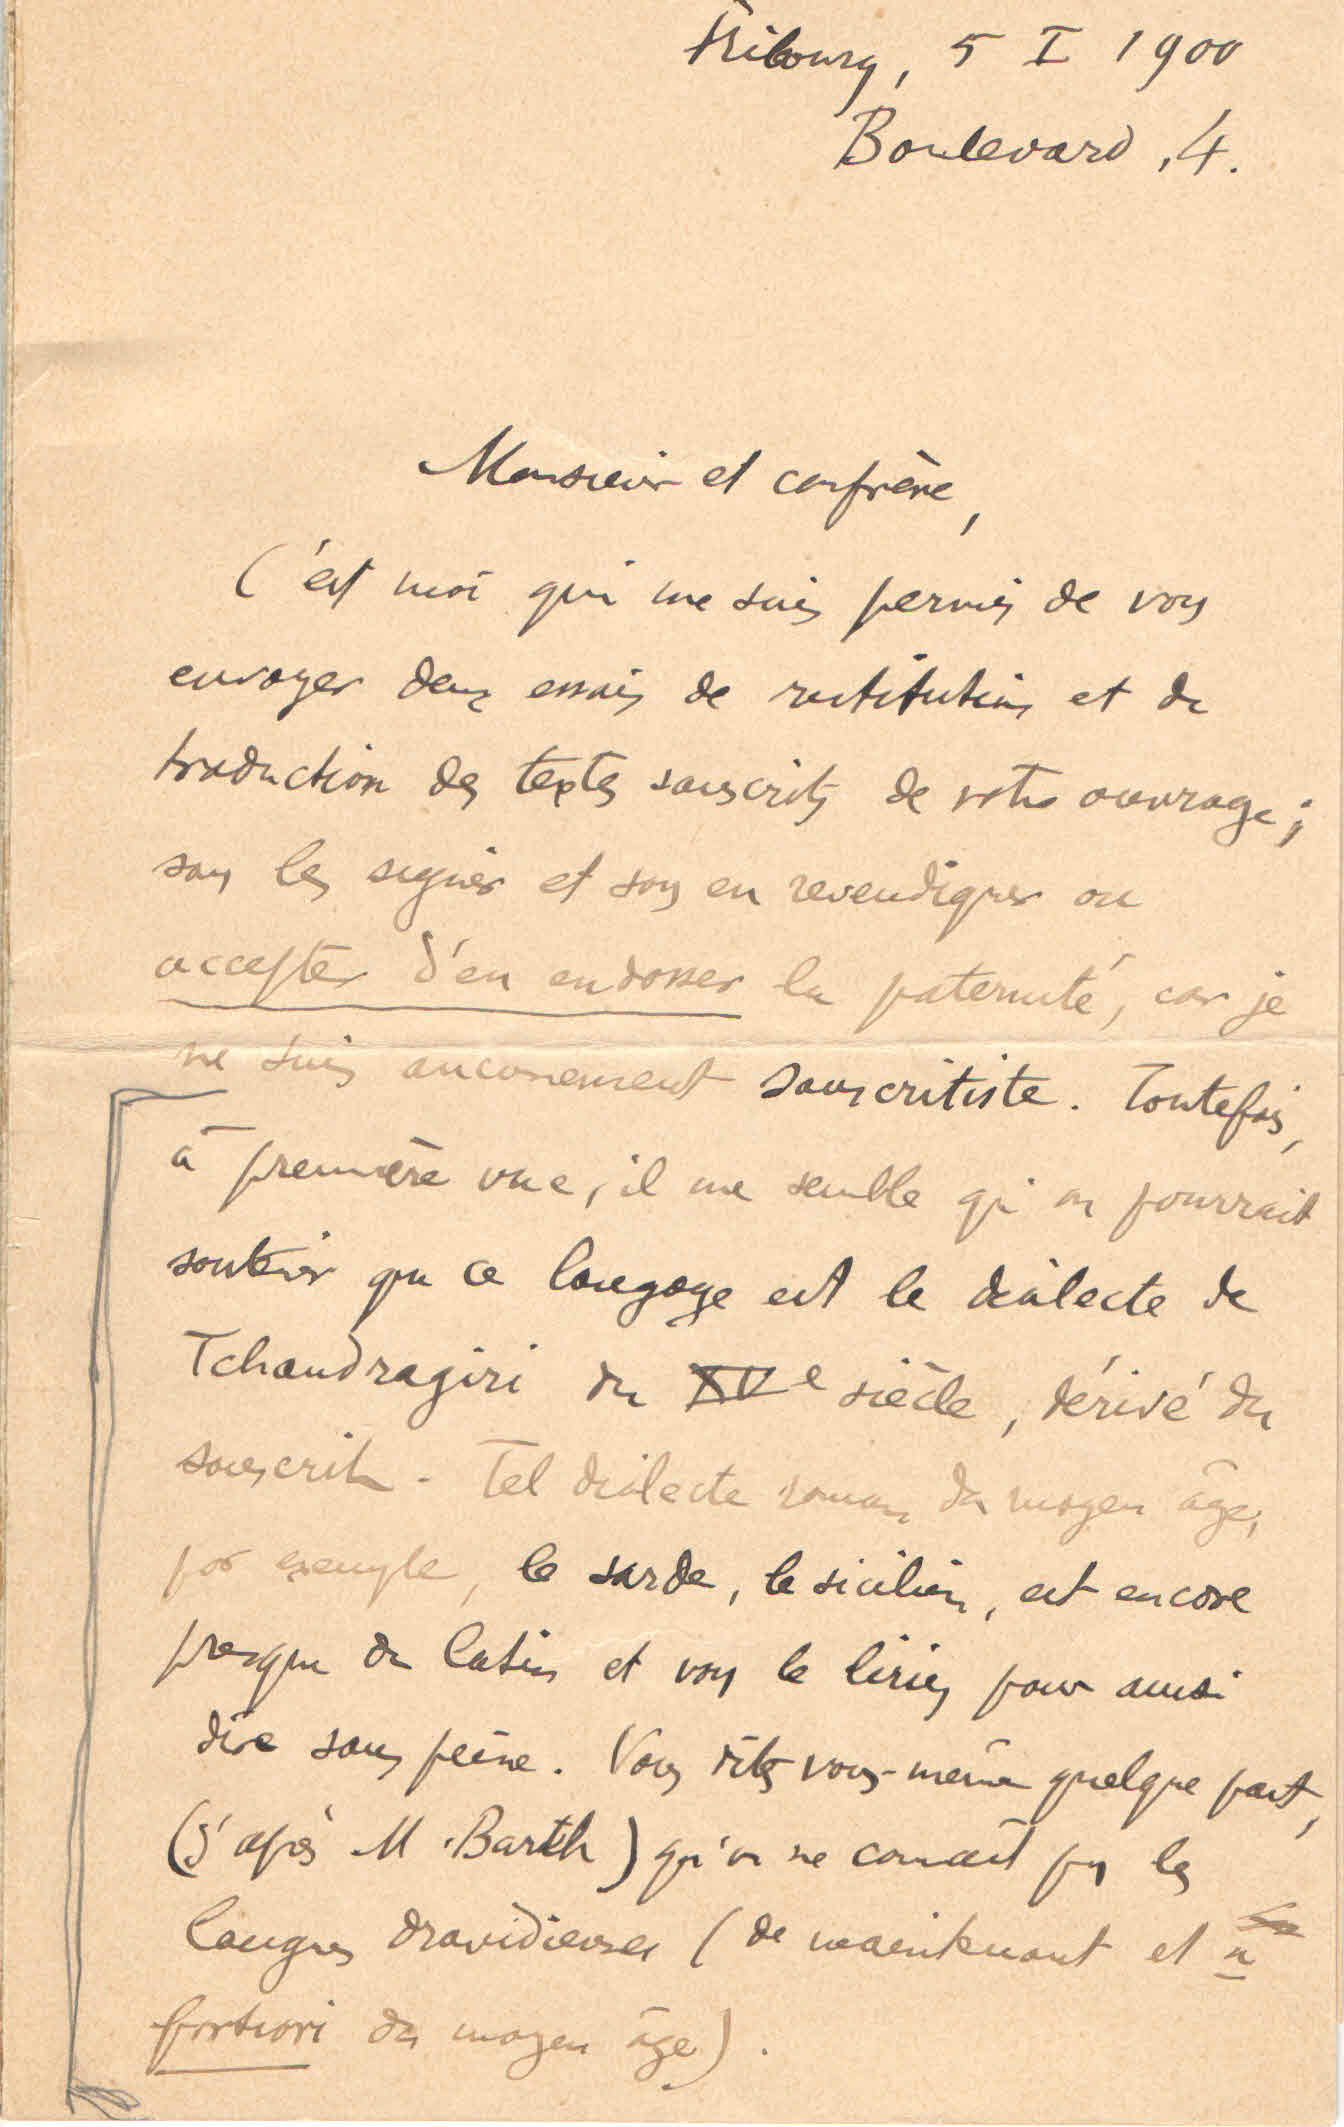 Fribourg, 5 I 1900
Boulevard, 4.
Monsieur et confrère,
C'est moi qui me suis permis de vous
envoyer deux essais de restitution et de
traduction des textes sanscrits de votre ouvrage ;
sans les signer et sans en revendiquer ou
accepter d'en endosser la paternité, car je
ne suis aucunement sanscritiste. Toutefois,
à première vue, il me semble qu'on pourrait
soutenir que ce langage est le dialecte de
Tchandragiri du XVe siècle, dérivé du
sanscrit. Tel dialecte roman du moyen âge,
par exemple, le sarde, le sicilien, est encore
presque du latin et vous le liriez pour ainsi
dire sans peine. Vous dites vous-même quelque part,
(d'après M. Barth) qu'on ne connaît pas les
langues dravidiennes (de maintenant et a
fortiori du moyen âge).